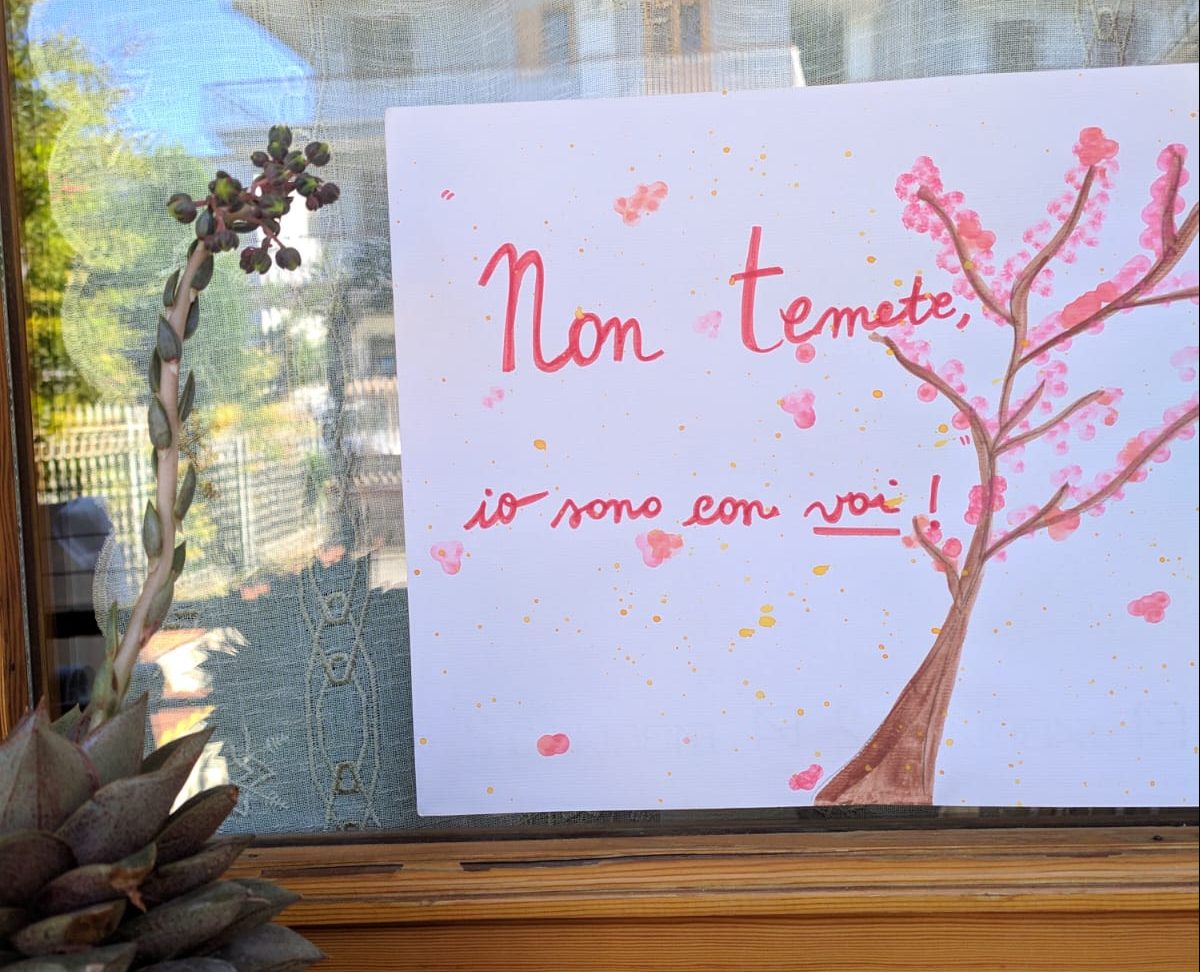 Non temete,
io sono con voi !